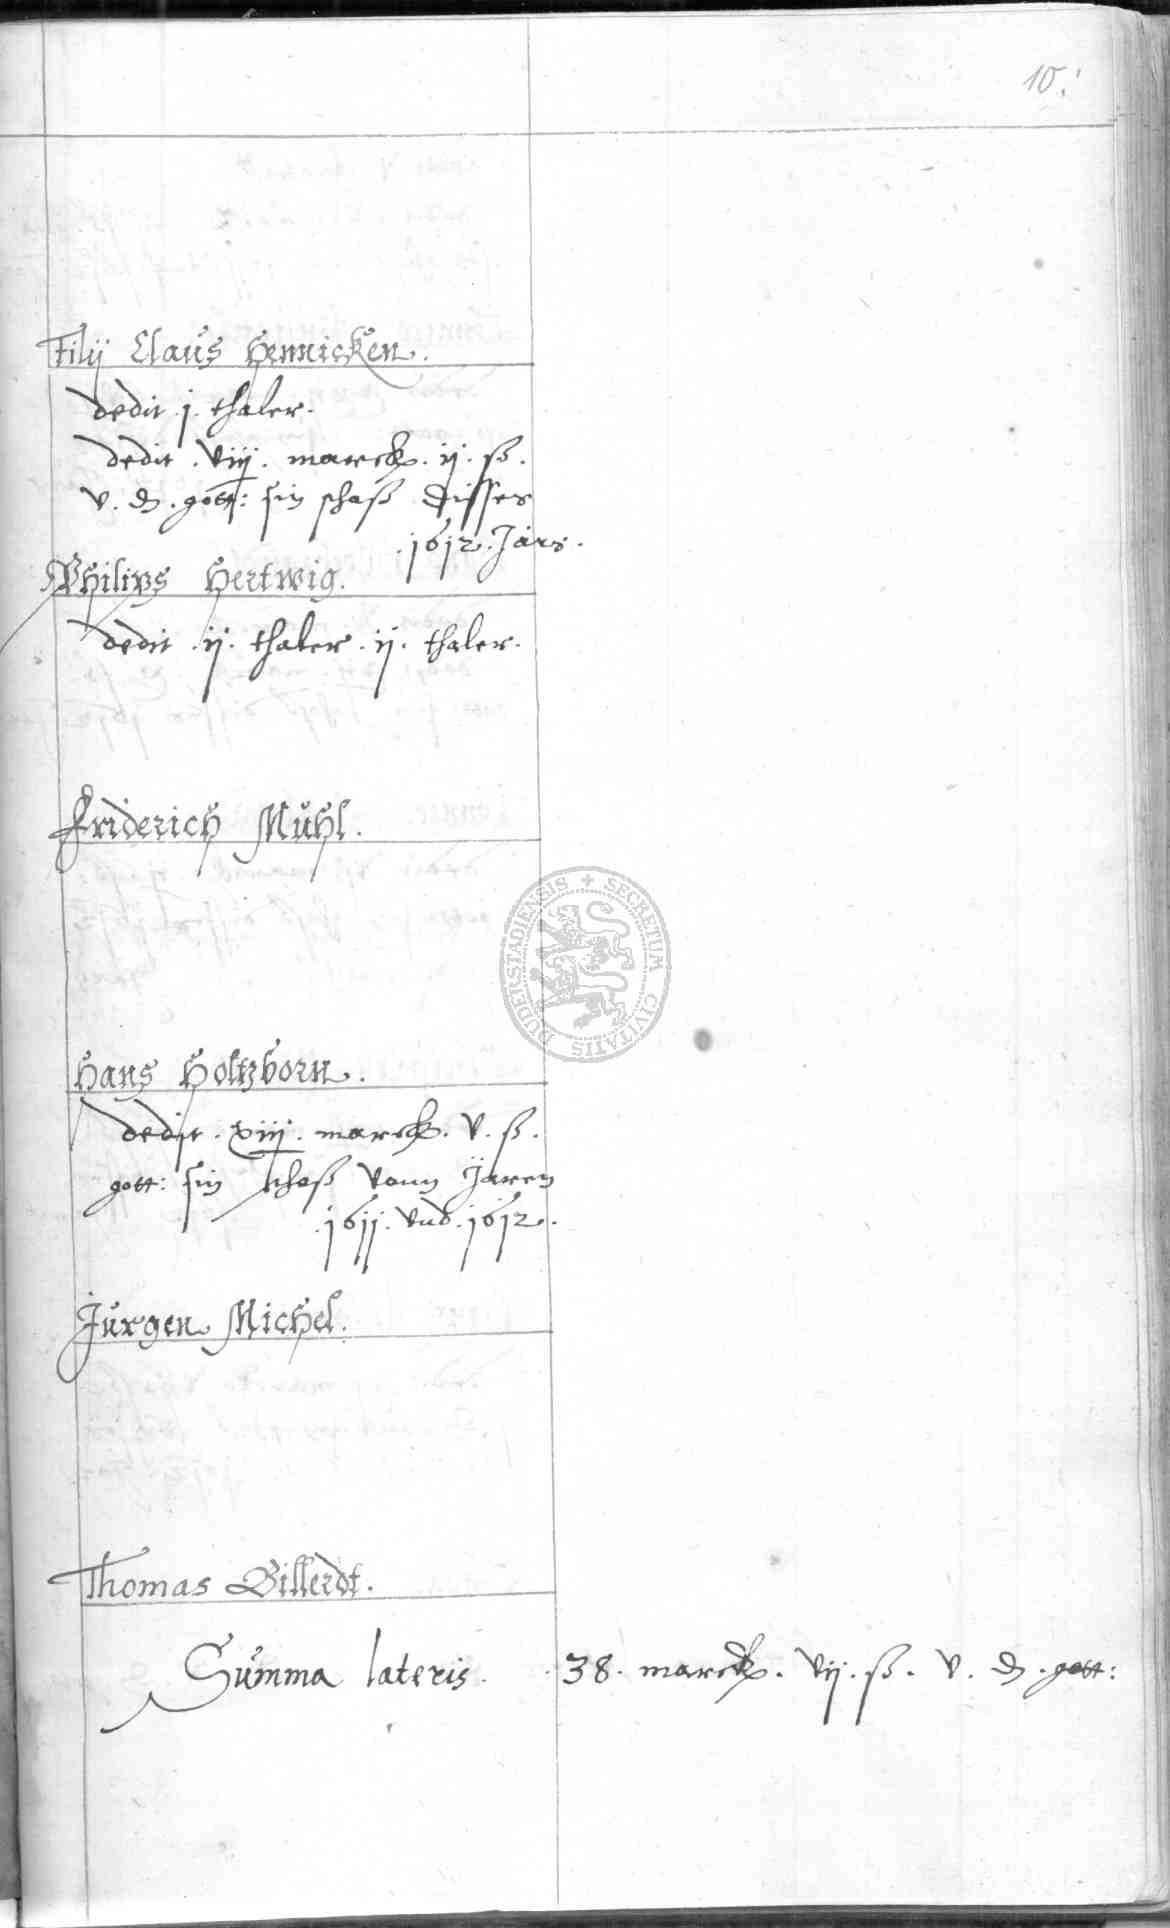 10.
Filij Claus Hennicken.
dedit .j. thaler.
dedit . viij . marck . ij . ß .
v . d . gott: sin schaß disses
.1612. Jars.
Philips Hertwig.
dedit .ij. thaler . ij . thaler.
Friderich Mühl.
Hans Holtzborn.
dedit . xiij . marck . v . ß .
gott: sin schaß vonn Jaren
.1611. vnd .1612.
Jürgen Michel.
Thomas Billerdt.
Summa lateris . 38 . marck . vij . ß . v . d . gott:
DUDERSTADIENSIS + SECRETUM CIVITATIS